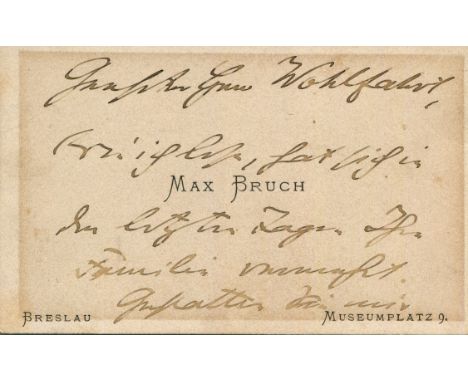 Herr Wohlfahrt,
wie ich lese, hat sich in
MAX BRUCH
den letzten Tagen Ihre
Familie vermehrt.
Gestatten Sie mir
BRESLAU
MUSEUMPLATZ 9.